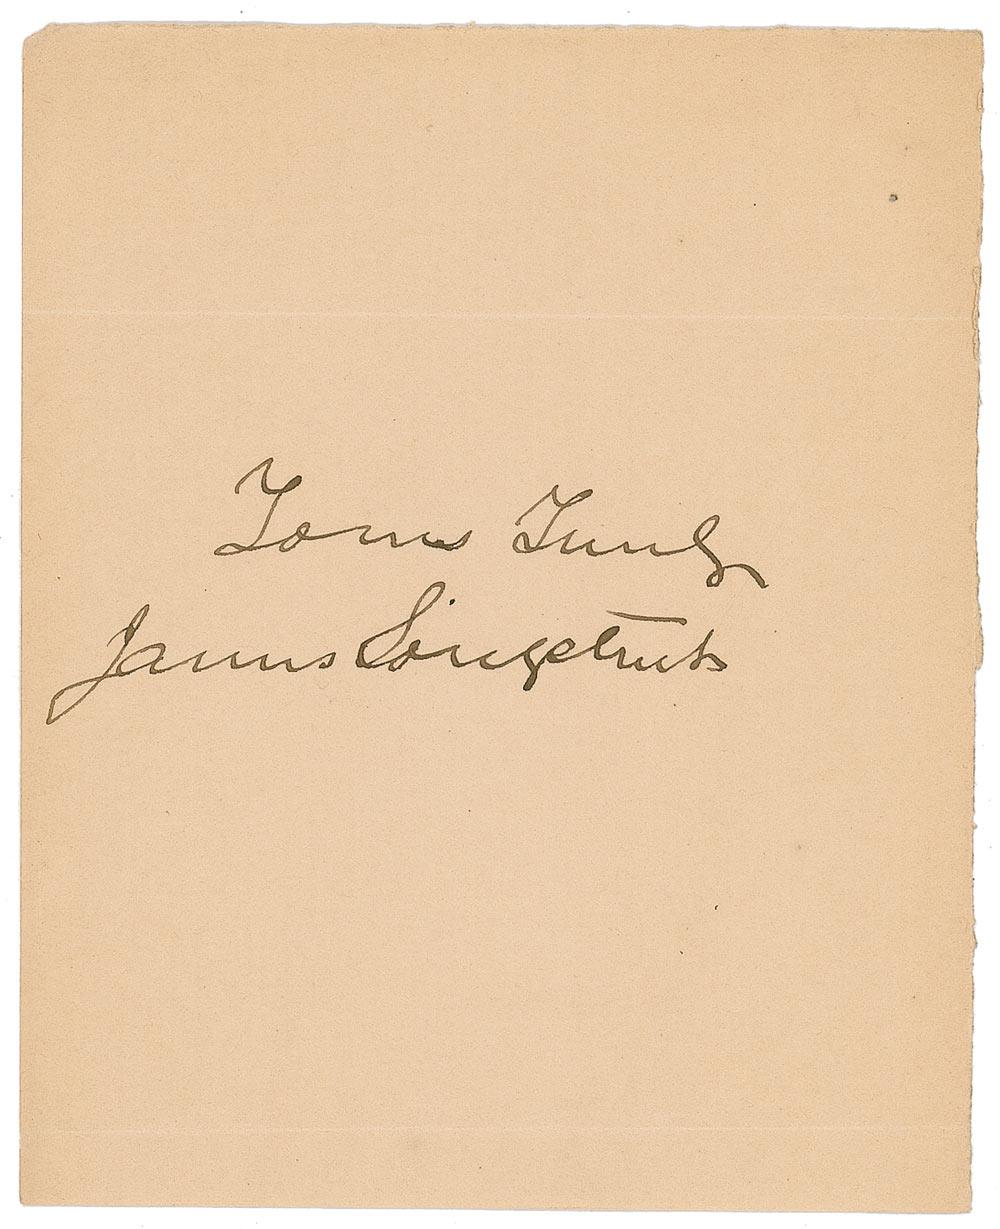 Yours Truly
James Longstreet